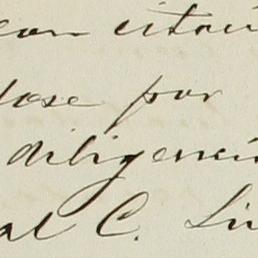 ean citau
dose por
diligenci
al C. Lu